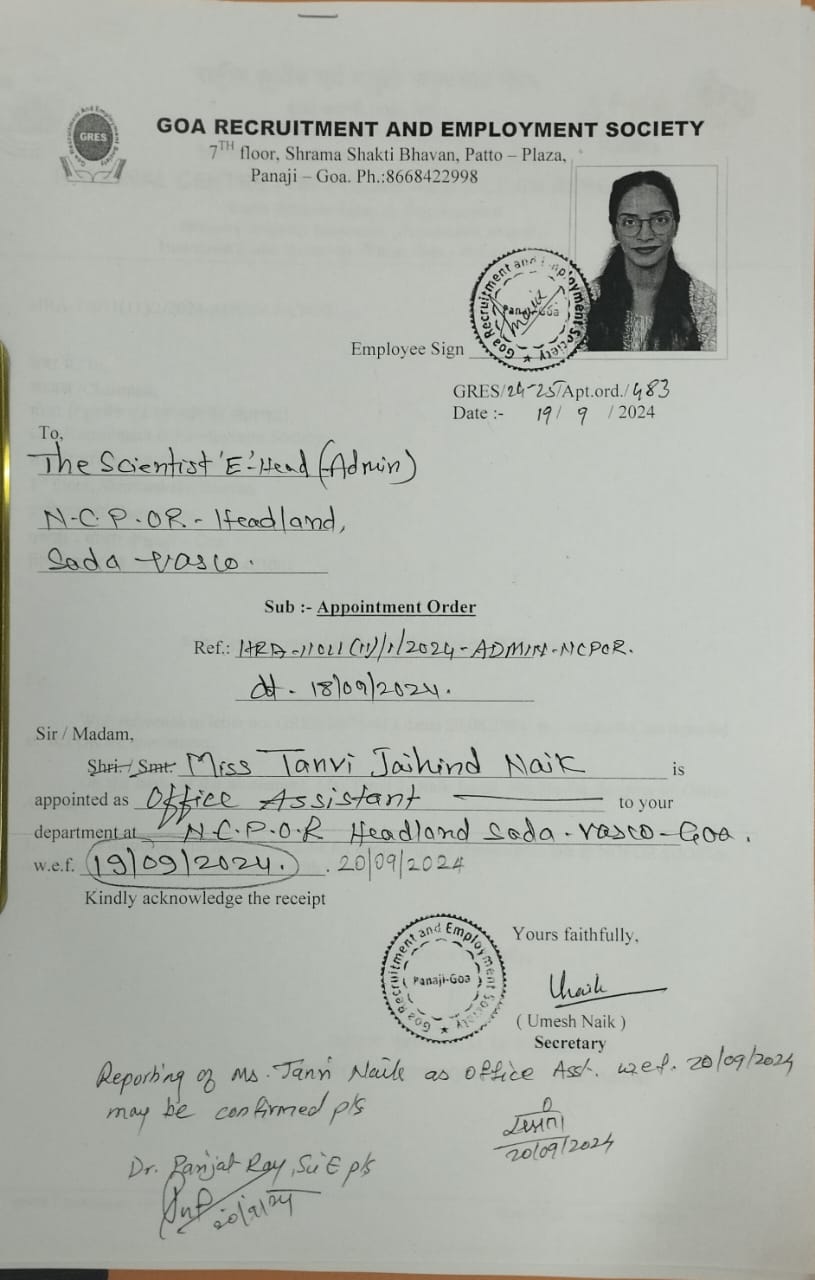 GOA RECRUITMENT AND EMPLOYMENT SOCIETY
GRES
7TH floor, Shrama Shakti Bhavan, Patto – Plaza,
Panaji – Goa. Ph.:8668422998
Goa Recruitment and Employment Society
Panaji-Goa
Employee Sign
GRES/24-25/Apt.ord./483
Date :- 19/ 9 / 2024
To,
The Scientist 'E'-Head (Admin)
N.C.P.OR - Headland,
Sada Vasco.
Sub :- Appointment Order
Ref.: HRA-11011(11)/1/2024-ADMIN-NCPOR.
dt - 18/09/2024.
Sir / Madam,
Shri. / Smt. Miss Tanvi Jaihind Naik is
appointed as Office Assistant to your
department at N.C.P.O.R Headland Sada-Vasco-Goa.
w.e.f. 19/09/2024. . 20/09/2024
Kindly acknowledge the receipt
Yours faithfully,
Goa Recruitment and Employment Society
Panaji-Goa
( Umesh Naik )
Secretary
Reporting of Ms. Tanvi Naik as Office Asst. w.e.f. 20/09/2024
may be confirmed pls
20/09/2024
Dr. Ranjat Roy, Sci E pls
20/9/24